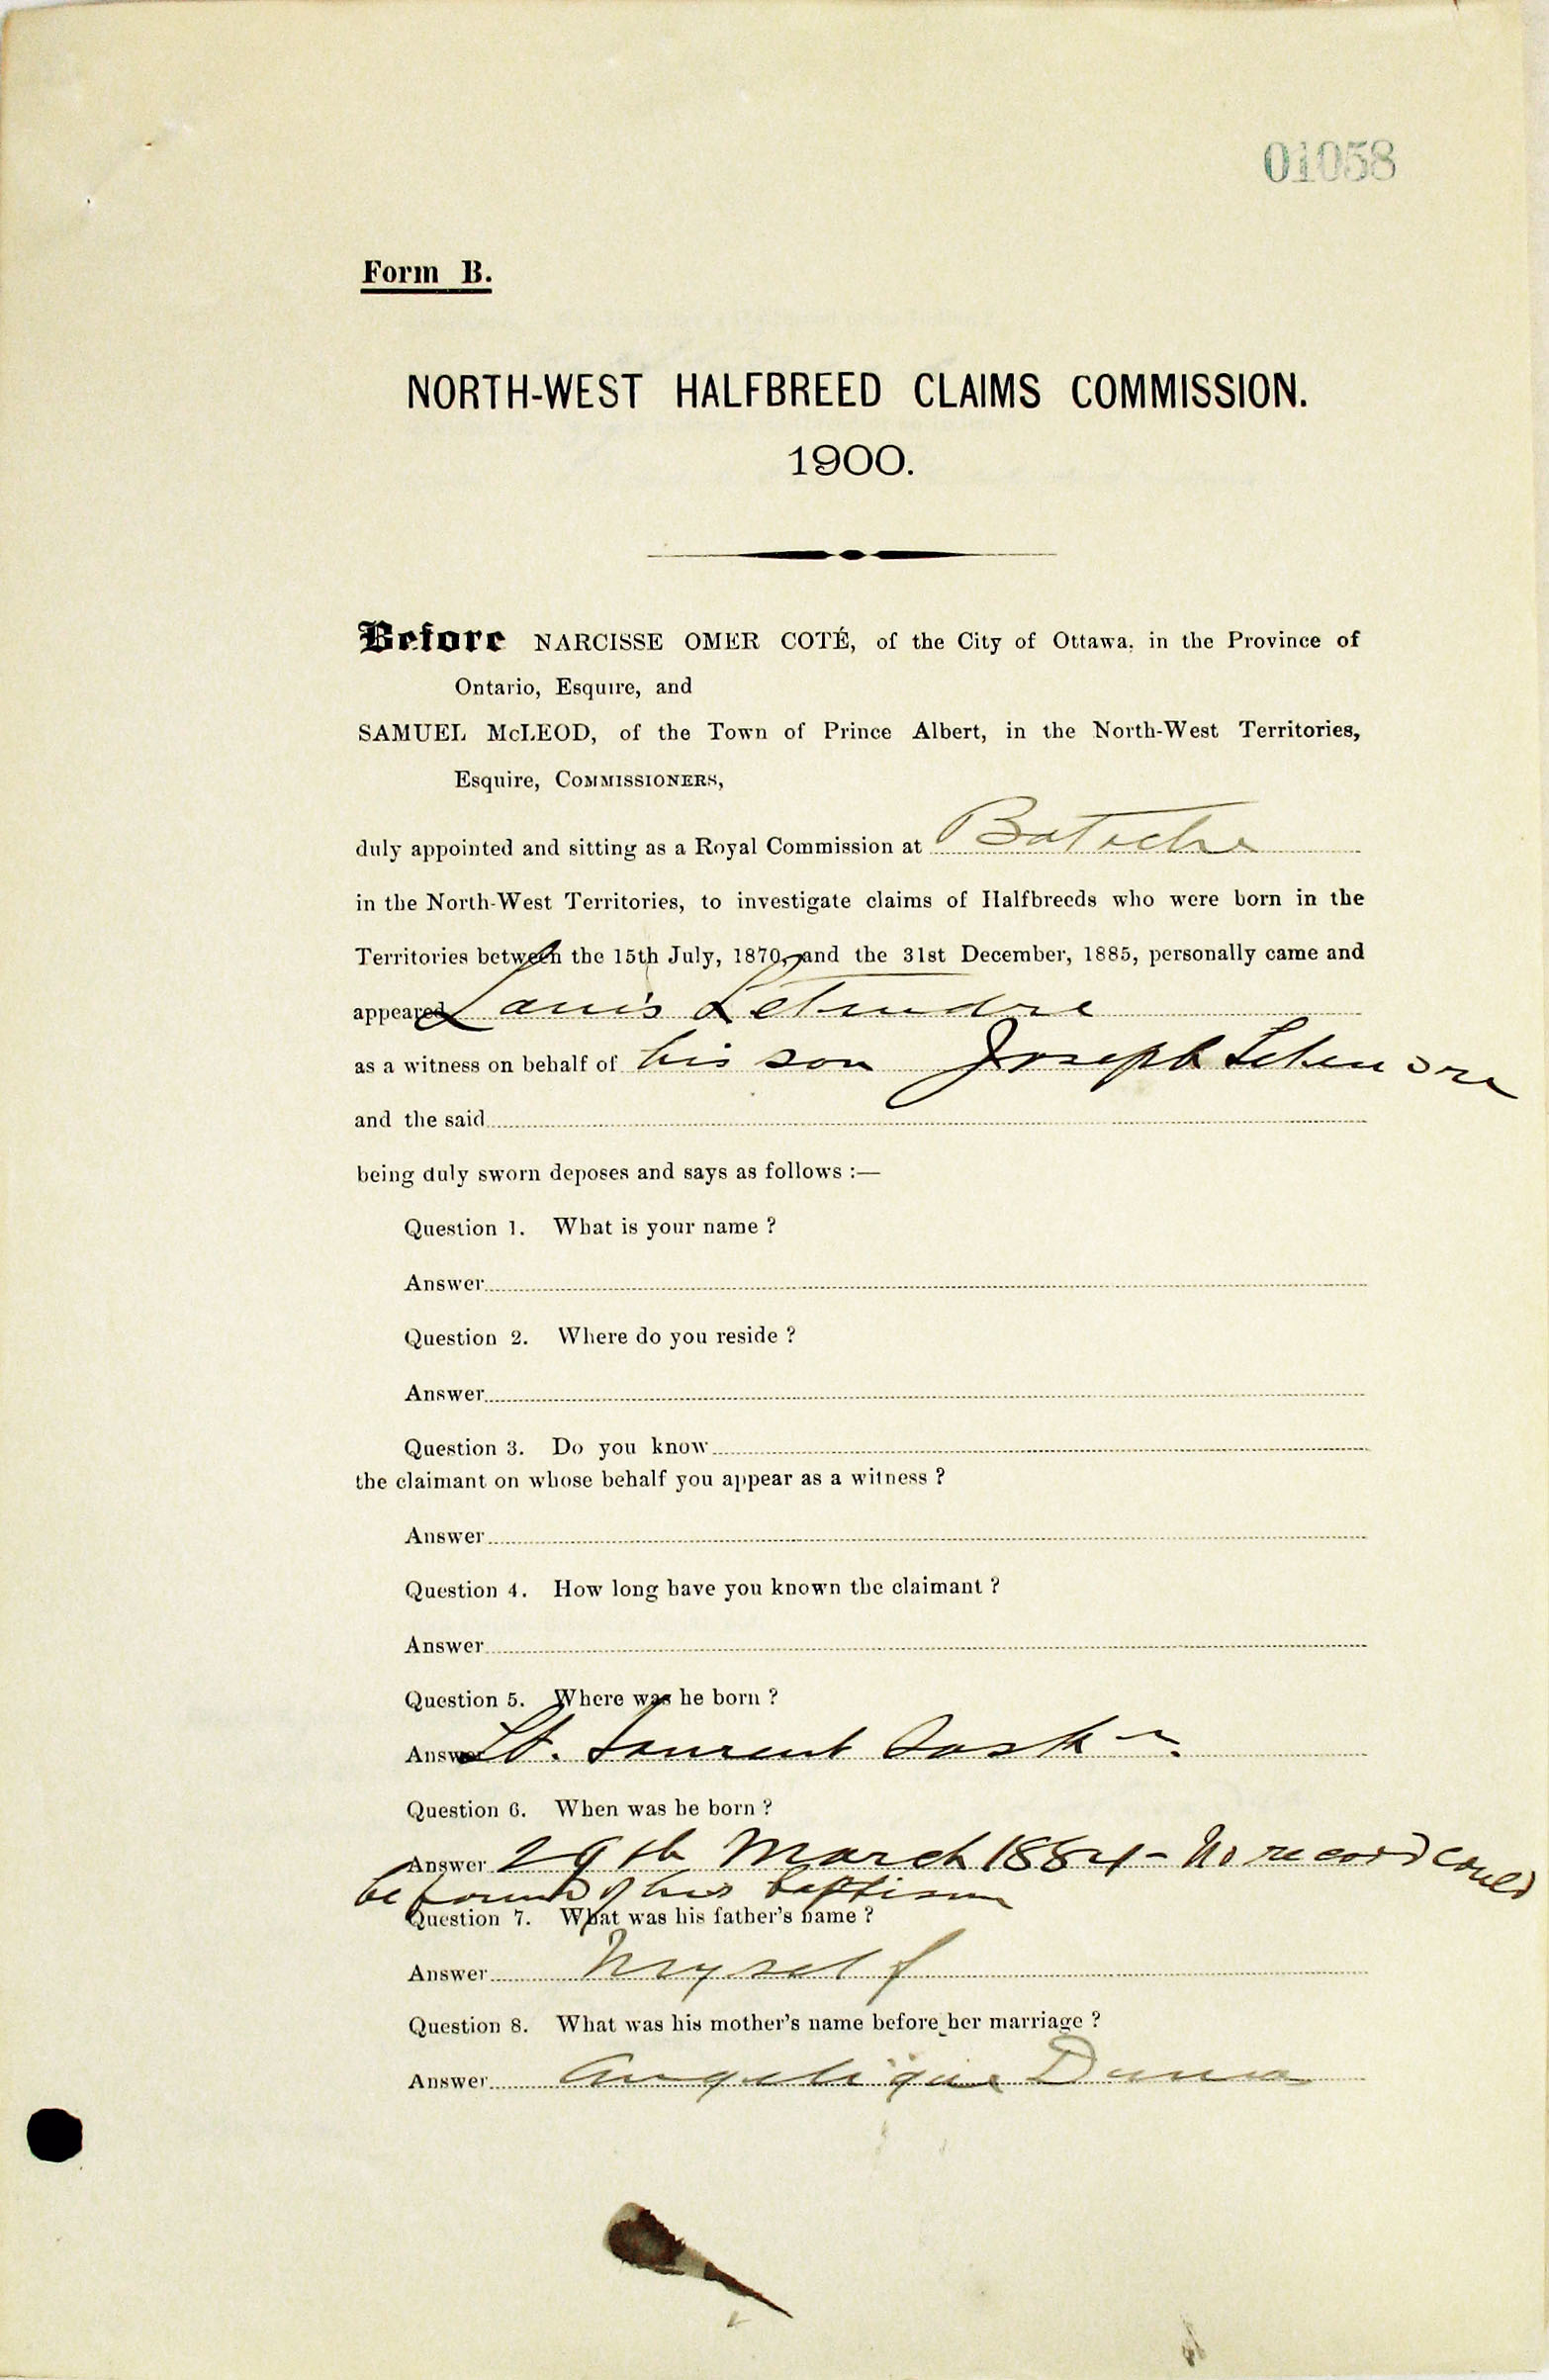 01058
Form B.
NORTH-WEST HALFBREED CLAIMS COMMISSION.
1900.
Before NARCISSE OMER COTÉ, of the City of Ottawa, in the Province of
Ontario, Esquire, and
SAMUEL McLEOD, of the Town of Prince Albert, in the North-West Territories,
Esquire, COMMISSIONERS,
duly appointed and sitting as a Royal Commission at Batoche
in the North-West Territories, to investigate claims of Halfbreeds who were born in the
Territories between the 15th July, 1870, and the 31st December, 1885, personally came and
appeared Louis Letendre
as a witness on behalf of his son Joseph Letendre
and the said
being duly sworn deposes and says as follows :—
Question 1. What is your name ?
Answer
Question 2. Where do you reside ?
Answer
Question 3. Do you know
the claimant on whose behalf you appear as a witness ?
Answer
Question 4. How long have you known the claimant ?
Answer
Question 5. Where was he born ?
Answer St. Laurent Sask
Question 6. When was he born ?
Answer 29th March 1884 - No record could
be found of his baptism
Question 7. What was his father's name ?
Answer Myself
Question 8. What was his mother's name before her marriage ?
Answer Angelique Dumas